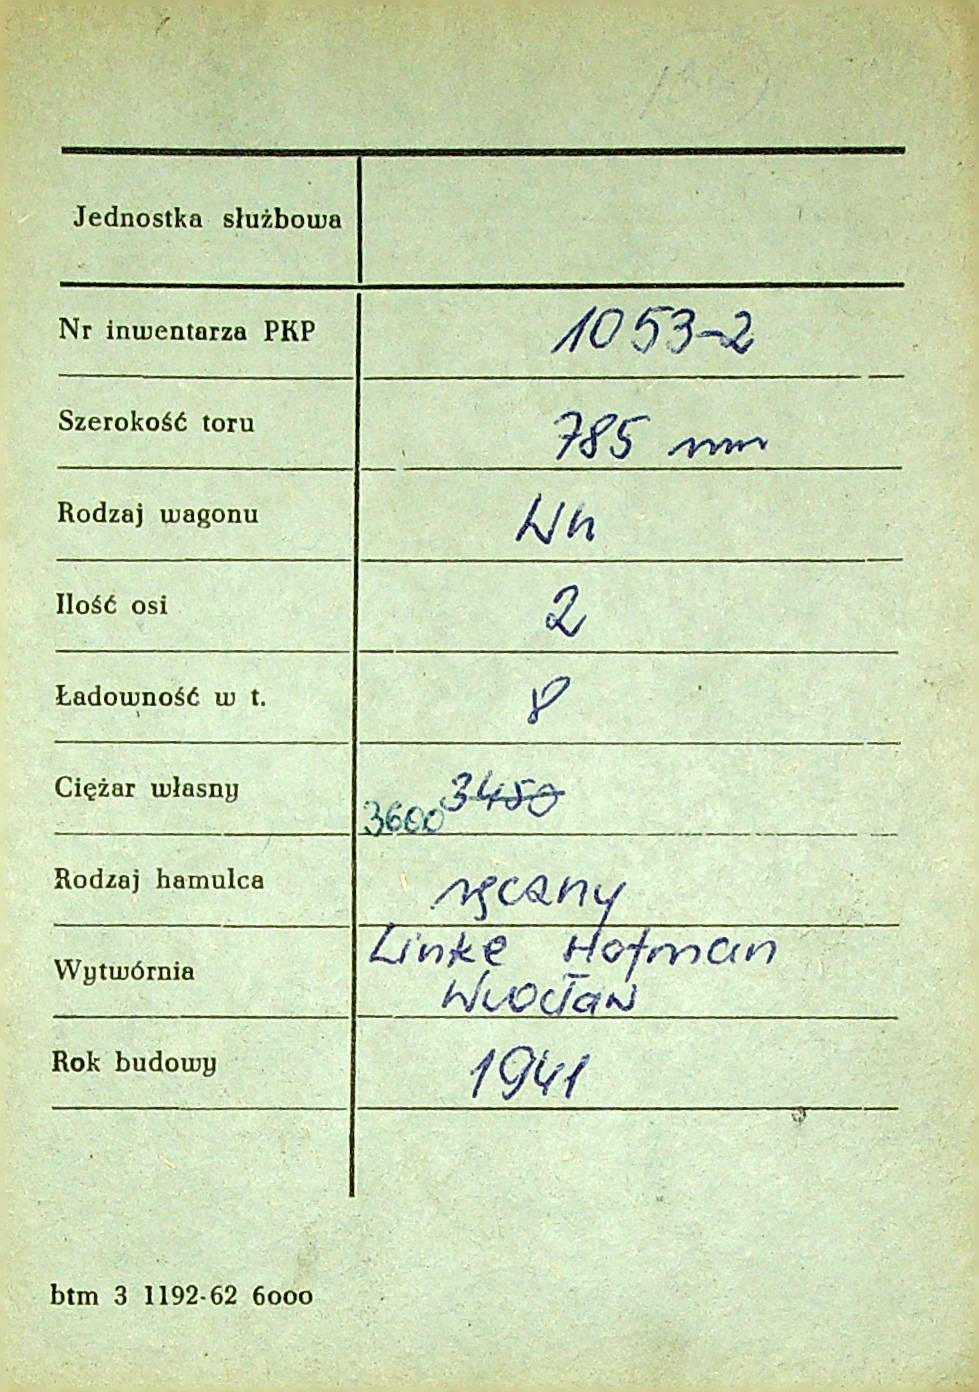 Jednostka służbowa
Nr inwentarza PKP 1053-2
Szerokość toru 785 mm
Rodzaj wagonu Wh
Ilość osi 2
Ładowność w t. 8
Ciężar własny 3450
3600
Rodzaj hamulca ręczny
Linke Hofman
Wytwórnia Wrocław
Rok budowy 1941
btm 3 1192-62 6000